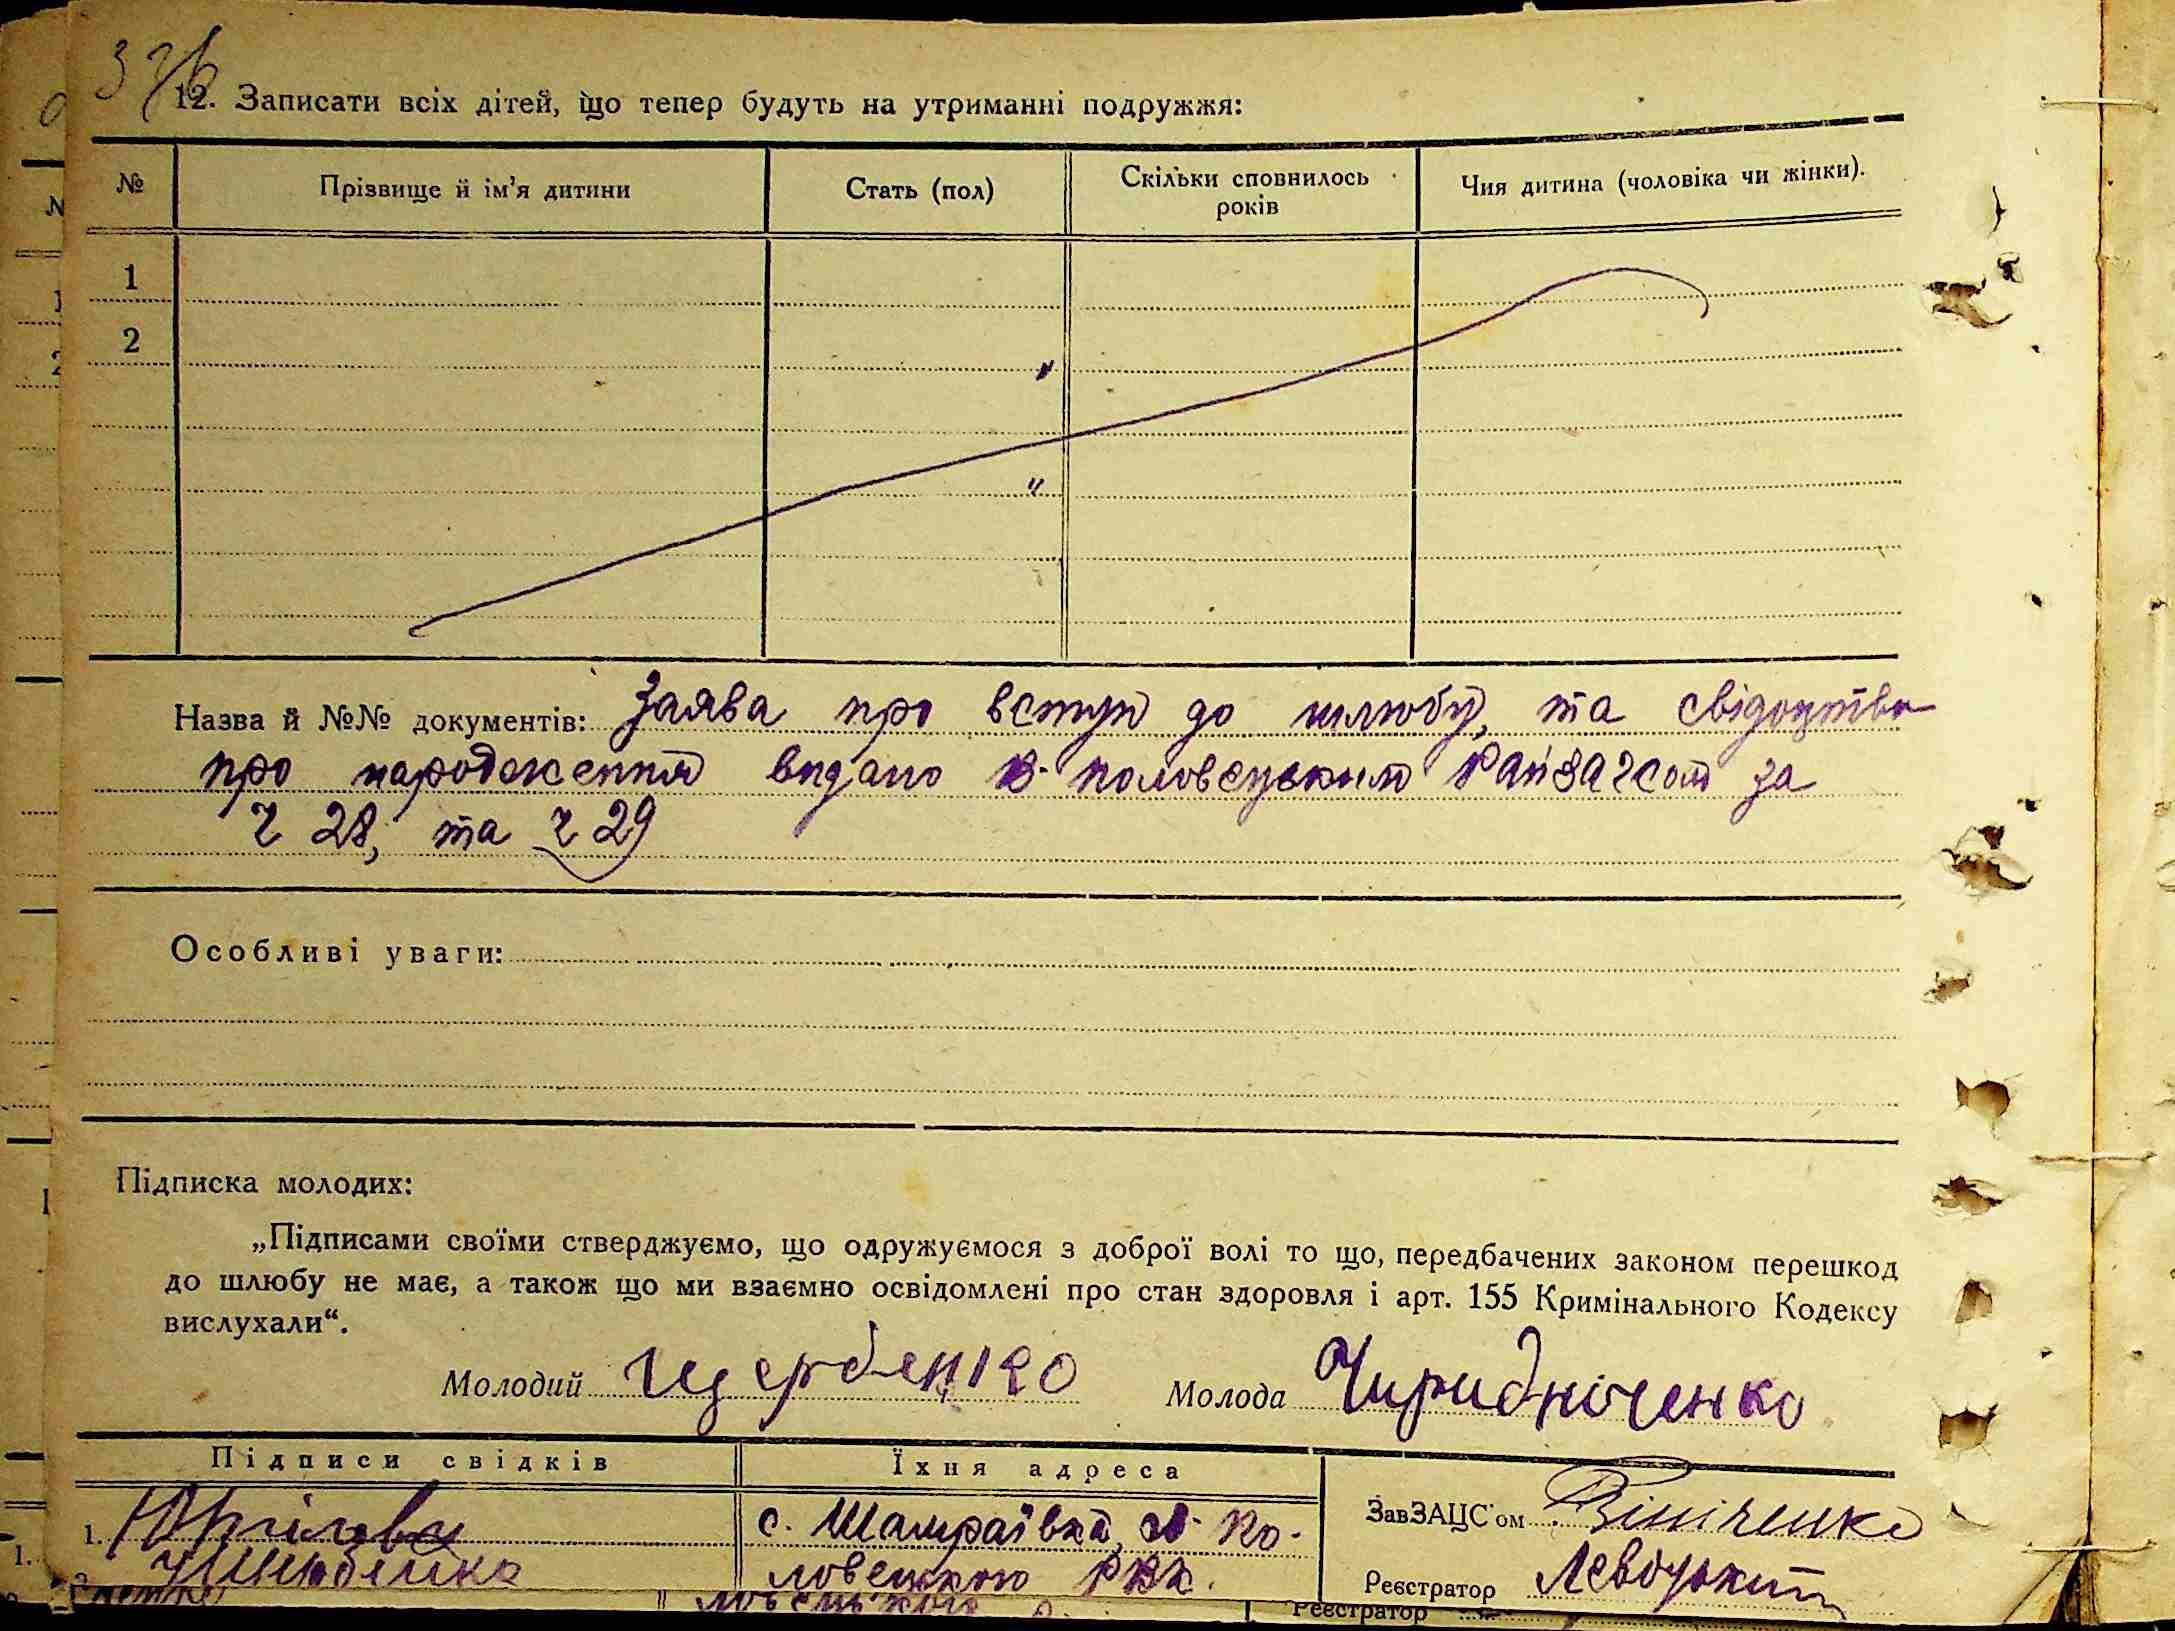 376
12. Записати всіх дітей, що тепер будуть на утриманні подружжя:
№ Прізвище й ім'я дитини Стать (пол) Скільки сповнилось років Чия дитина (чоловіка чи жінки).
1
2
"
"
Назва й №№ документів: Заява про вступ до шлюбу, та свідоцтва
про народження видано В-половецьким Райзагсом за
ч 28, та ч 29
Особливі уваги:
Підписка молодих:
„Підписами своїми стверджуємо, що одружуємося з доброї волі то що, передбачених законом перешкод
до шлюбу не має, а також що ми взаємно освідомлені про стан здоровля і арт. 155 Кримінального Кодексу
вислухали“.
Молодий Щербенко Молода Чиридніченко
Підписи свідків Їхня адреса
1. с. Шамраївка, В-По-
ловецького
ЗавЗАЦС'ом Вініченко
Реєстратор
1.
Реєстратор